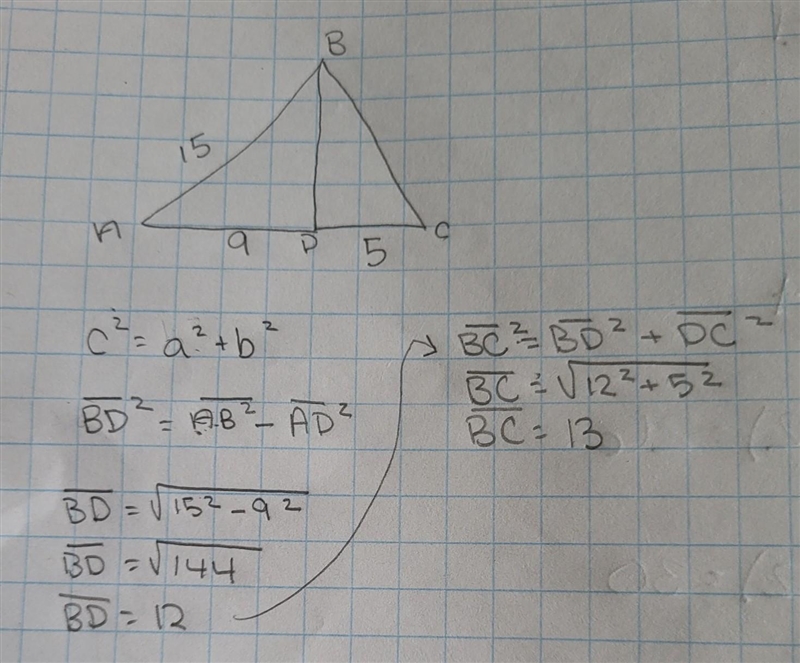 B
15
A
9
D
5
C
c² = a² + b²
BD̅² = AB̅² - AD̅²
BD̅ = √15² - 9²
BD̅ = √144
BD̅ = 12
BC̅² = BD̅² + DC̅²
BC̅ = √12² + 5²
BC̅ = 13